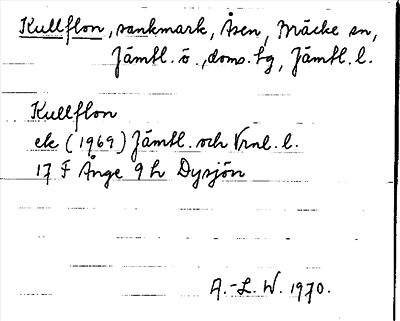 Kullflon, sankmark, Åsen, Bräcke sn,
Jämtl. ö., doms. tg, Jämtl. l.
Kullflon
ek (1969) Jämtl. och Vrnl. l.
17 F Ånge 9 h Dysjön
A.-L. W. 1970.